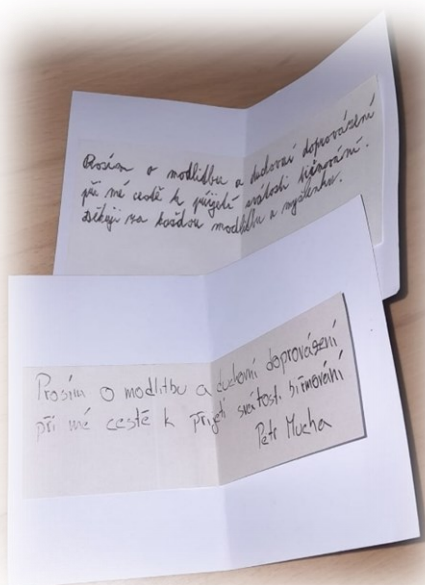 Prosím o modlitbu a duchovní doprovázení
při mé cestě k přijetí svátosti biřmování.
Děkuji za každou modlitbu a myšlenku.
Prosím o modlitbu a duchovní doprovázení
při mé cestě k přijetí svátosti biřmování
Petr Mucha